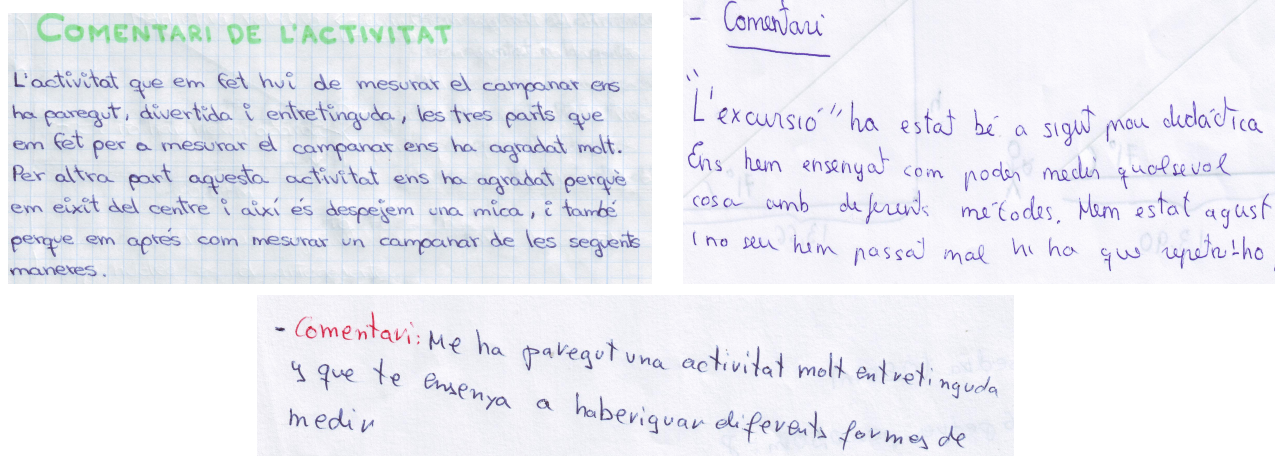 COMENTARI DE L'ACTIVITAT
L'activitat que em fet hui de mesurar el campanar ens
ha paregut, divertida i entretinguda, les tres parts que
em fet per a mesurar el campanar ens ha agradat molt.
Per altra part aquesta activitat ens ha agradat perquè
em eixit del centre i així és despejem una mica, i també
perque em aprés com mesurar un campanar de les seguents
maneres.
- Comentari
"L'excursió" ha estat bé a sigut mou didáctica
Ens hem ensenyat com poden medir qualsevol
cosa amb deferents métodes. Hem estat agust
i no seu hem passat mal hi ha que repetir-ho.
- Comentari: Me ha paregut una activitat molt entretinguda
y que te ensenya a haberiguar diferents formes de
medir